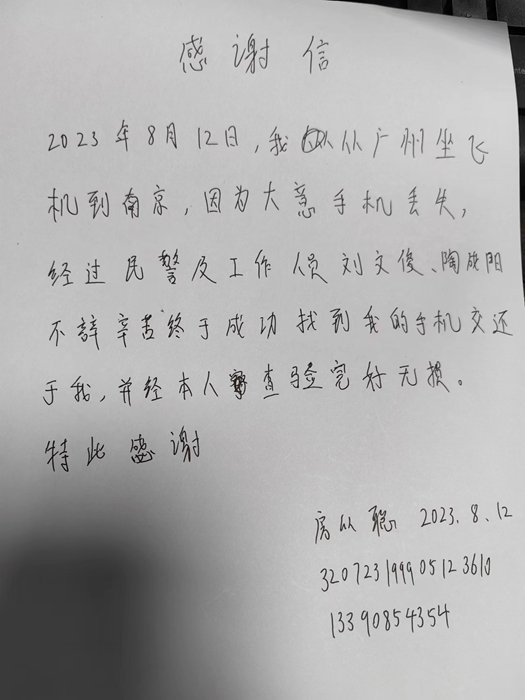 感谢信
2023年8月12日,我从广州坐飞
机到南京,因为大意手机丢失,
经过民警及工作人员刘文俊、陶成阳
不辞辛苦终于成功找到我的手机交还
于我,并经本人查验完好无损。
特此感谢
房从聪 2023.8.12
320723199905123610
13390854354